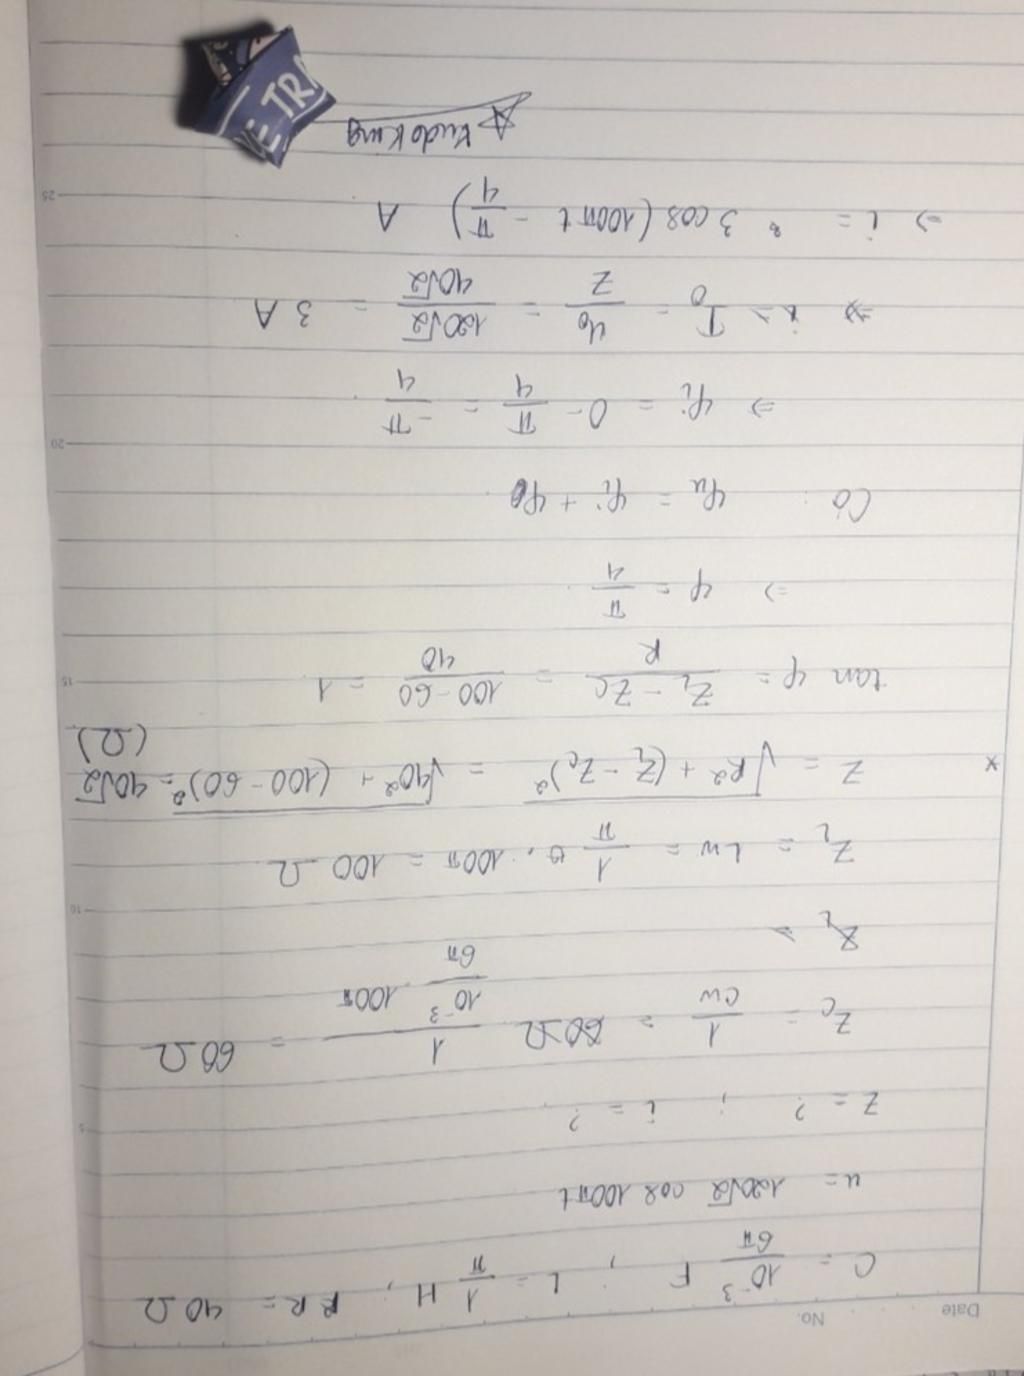 Date No.
C = 10⁻³/6π F ; L = 1/π H ; R = 40 Ω
u = 120√2 cos 100πt
Z = ? ; i = ?
Z_C = 1/Cω = 1/(10⁻³/6π · 100π) = 60 Ω
Z_L =
Z_L = Lω = 1/π . 100π = 100 Ω
* Z = √(R² + (Z_L - Z_C)²) = √(40² + (100-60)²) = 40√2 (Ω)
tan φ = (Z_L - Z_C)/R = (100-60)/40 = 1
=> φ = π/4
Có : φu = φi + φ
=> φi = 0 - π/4 = -π/4
=> I₀ = u₀/Z = 120√2/40√2 = 3 A
=> i = 3 cos (100πt - π/4) A
KudoKing
TRA
5
10
15
20
25